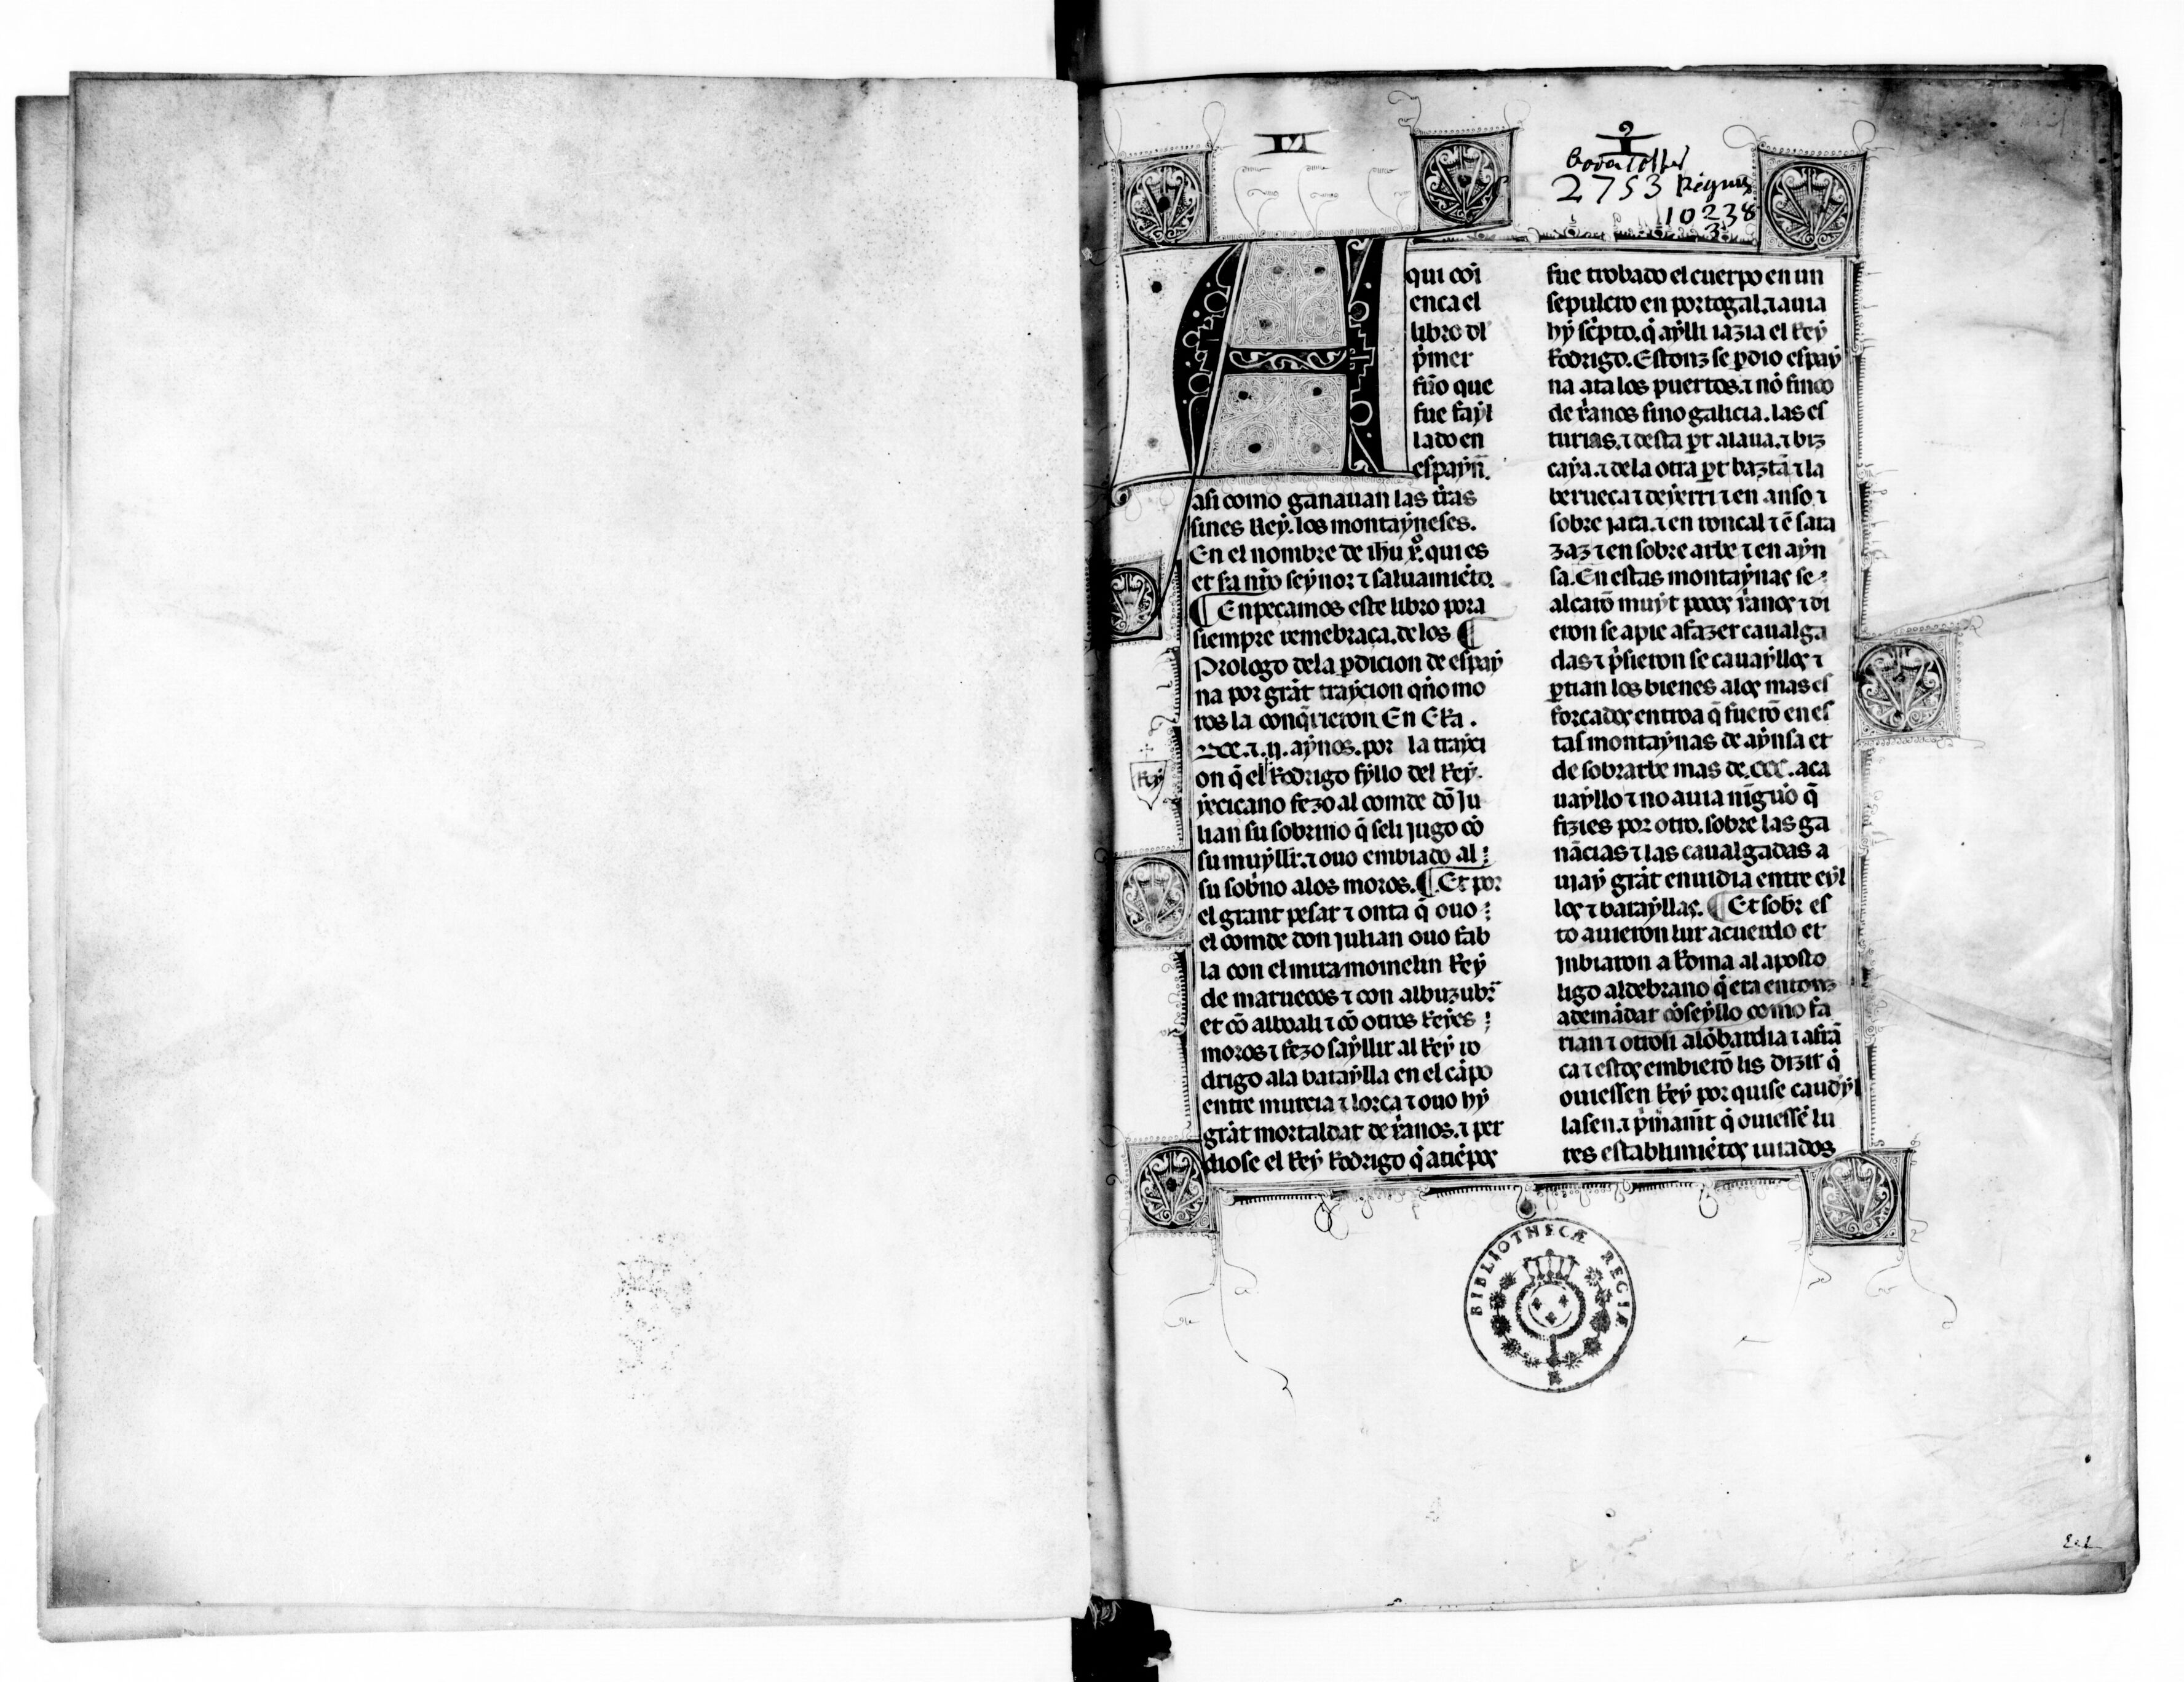 2753
10238
3
A
qui com̄
enca el
libro dl
p̄mer
fūo que
fue fayl
lado en
espayn̄.
asi como ganauan las tr̄as
sines Rey. los montayneses.
En el nombre de ihu x̄o. qui es
et sa nr̄o seynor ⁊ saluamiēto.
¶ Enpeçamos este libro pora
siempre remēbrāça. de los ¶
Prologo dela p̱dicion de espay
na por grāt traycion q̄no mo
ros la conq̄rieron. En Era.
Dcc. ⁊ .ij. aynos. por la trayci
on q̄ el Rodrigo fyllo del Rey.
yecicano fezo al comde dō Ju
lian su sobrino q̄ seli jugo cō
su muyller. ⁊ ouo embiado al
su sobrīno alos moros. ¶ Et por
el grant pesar ⁊ onta q̄ ouo
el comde don julian ouo fab
la con el miramomelin Rey
de marruecos ⁊ con albuzubr̄
et cō alboali ⁊ cō otros Reyes
moros ⁊ fezo sayllir al Rey ro
drigo ala bataylla en el cāpo
entre murcia ⁊ lorca ⁊ ouo hy
grāt mortaldat de xr̄anos. ⁊ per
diose el Rey Rodrigo q̄ a tiēpos
Rey
fue trobado el cuerpo en un
sepulcro en portogal. ⁊ auia
hy sc̄pto. q̄ aylli iazia el Rey
Rodrigo. Estonz se p̱dio espay
na ata los puertos. ⁊ nō finco
de xr̄anos sino galicia. las es
turias. ⁊ desta p̱t alaua. ⁊ biz
caya. ⁊ dela otra p̱t baztā ⁊ la
berueca ⁊ deyerri ⁊ en anso ⁊
sobre jaca. ⁊ en roncal ⁊ ē sara
zaz ⁊ en sobre arbe ⁊ en ayn
sa. En estas montaynas se
alcarō muyt pocos xr̄anos ⁊ di
eron se a pie a fazer caualga
das ⁊ p̄sieron se cauayllos ⁊
p̱tian los bienes alos mas es
forcados entroa q̄ fuerō en es
tas montaynas de aynsa et
de sobrarbe mas de .CCC. a ca
uayllo ⁊ no auia nīguō q̄
fizies por otro. sobre las ga
nācias ⁊ las caualgadas a
uiay grāt enuidia entre eyl
los ⁊ barayllas. ¶ Et sobr̄ es
to auieron lur acuerdo et
jnbiaron a Roma al aposto
ligo aldebrano q̄ era entonz
a demādar cōseyllo como fa
rian ⁊ otrosi a lōbardia ⁊ a frā
ca ⁊ estos embierō lis dizir q̄
ouiessen Rey por qui se caudyl
lasen. ⁊ p̄mam̄t q̄ ouiessē lu
res establimiētos iurados
BIBLIOTHECÆ REGIÆ